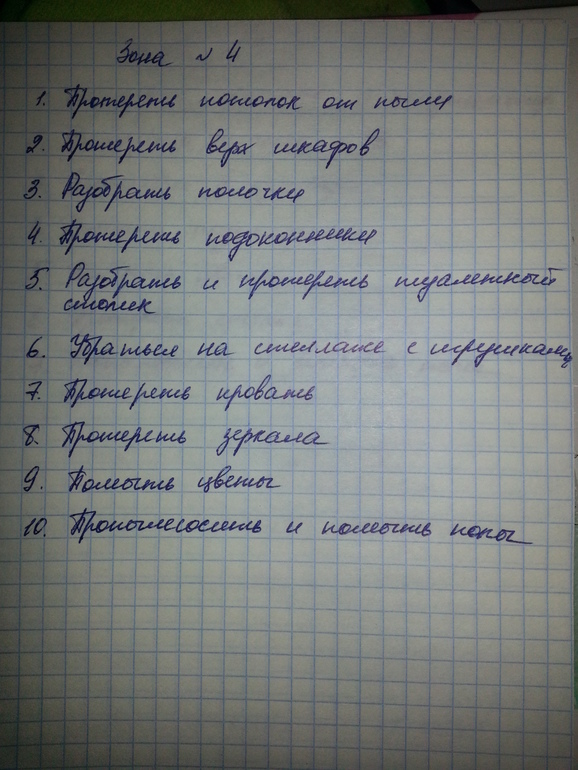 Зона № 4
1. Протереть потолок от пыли
2. Протереть верх шкафов
3. Разобрать полочки
4. Протереть подоконники
5. Разобрать и протереть туалетный
столик
6. Убраться на стеллаже с игрушками
7. Протереть кровать
8. Протереть зеркала
9. Помыть цветы
10. Пропылесосить и помыть полы